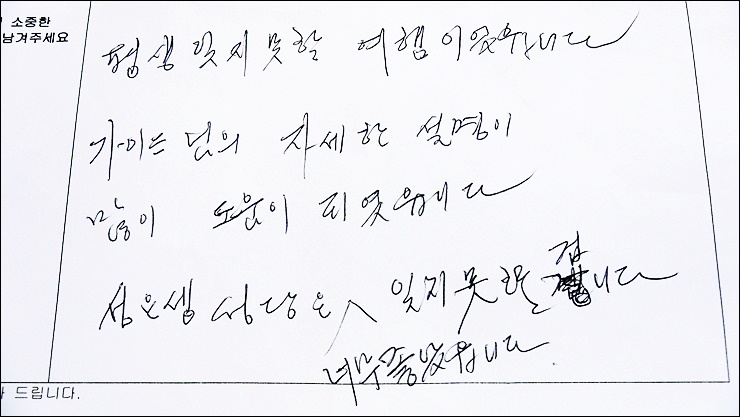 소중한
남겨주세요
평생 잊지 못할 여행이였읍니다
가이드 님의 자세한 설명이
많이 도움이 되였읍니다
성당은 잊지 못할 겁니다
너무 좋았읍니다
드립니다.